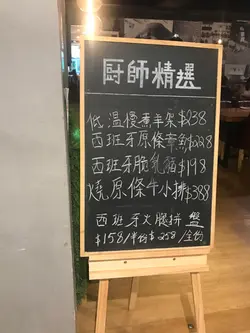 廚師精選
低溫慢煮羊架$238
西班牙原條章魚$228
西班牙脆乳豬$198
燒原條牛小排$388
西班牙火腿拼盤
$158/半份 $258/全份